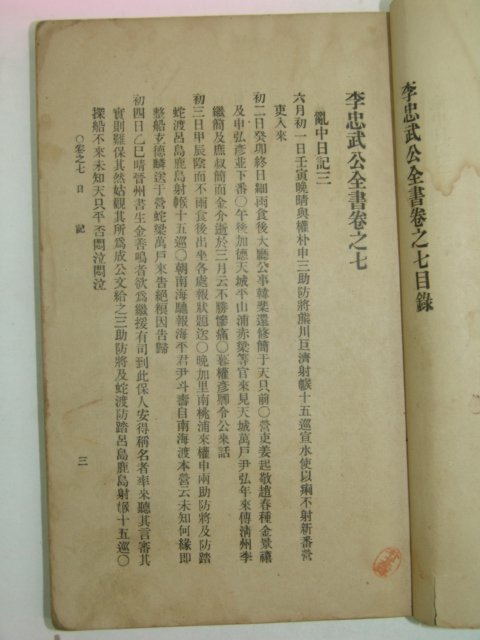 李忠武公全書卷之七目錄
李忠武公全書卷之七
亂中日記三
六月初一日壬寅晚晴與權朴申三助防將熊川巨濟射帿十五巡宣水使以痢不射新番營
吏入來
初二日癸卯終日細雨食後大廳公事韓棐還修簡于天只前〇營吏姜起敬趙春種金景禧
及申弘彦並下番〇午後加德天城平山浦赤梁等官來見天城萬戶尹弘年來傳淸州李
繼簡及庶叔簡而金介逝於三月云不勝慘痛〇暮權彦卿令公來話
初三日甲辰陰而不雨食後出坐各處報狀題送〇晚加里南桃浦來權申兩助防將及防踏
蛇渡呂島鹿島射帿十五巡〇朝南海馳報海平君尹斗壽自南海渡本營云未知何緣卽
整船玄德麟送于營蛇梁萬戶來告絕粮因告歸
初四日乙巳晴晉州書生金善鳴者欲爲繼援有司到此保人安得稱名者率來聽其言審其
實則難保其然姑觀其所爲成公文給之三助防將及蛇渡防踏呂島鹿島射帿十五巡〇
探船不來未知天只平否悶泣悶泣
〇卷之七 日 記
三